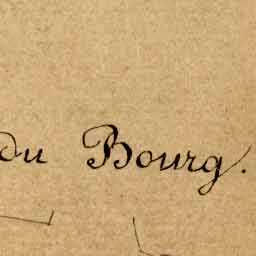 du Bourg.